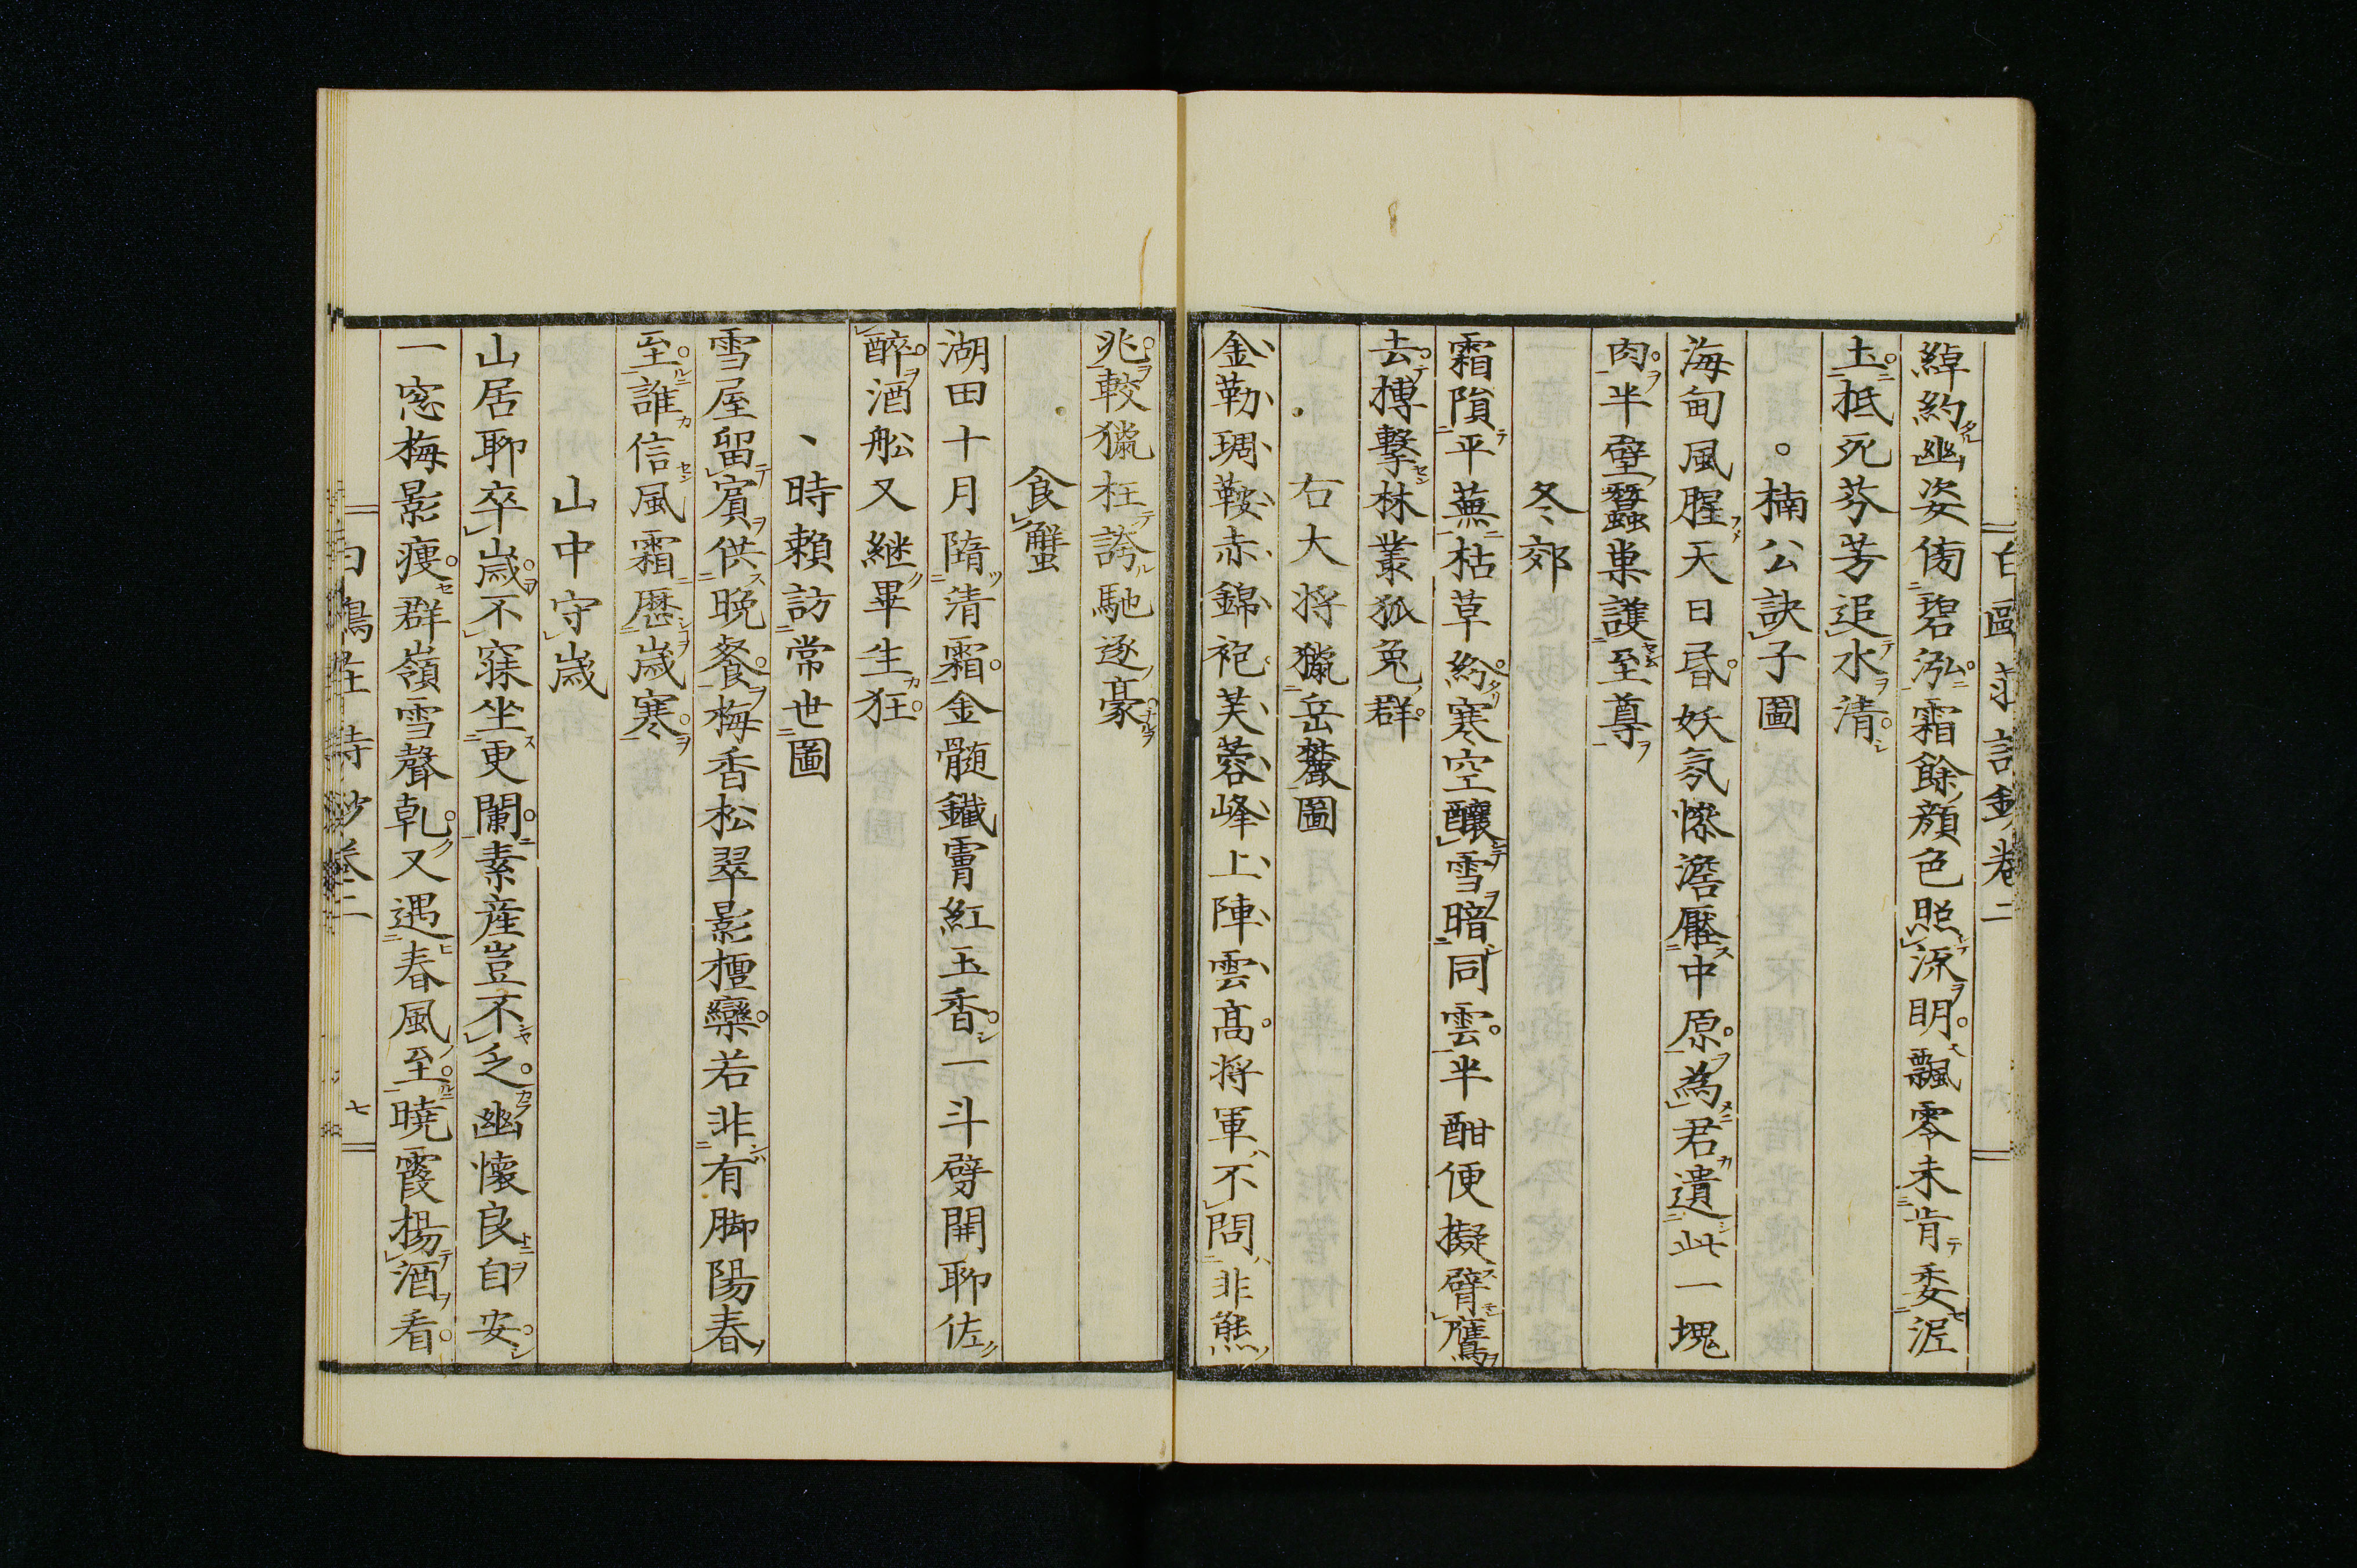 綽約幽姿傍碧泓霜餘顔色照流明飄零未肯委泥
土抵死芬芳追水清
楠公訣子圖
海甸風腥天日昏妖氛慘澹壓中原為君遺此一塊
肉半壁蠶巢護至尊
冬郊
霜隕平蕪枯草紛寒空釀雪暗同雲半酣便擬臂鷹
去搏擊林叢狐兔群
右大将獵岳麓圖
金勒琱鞍赤錦袍芙蓉峰上陣雲高将軍不問非熊
兆較獵枉誇馳逐豪
食蟹
湖田十月隋清霜金髓鐵膏紅玉香一斗劈開聊佐
醉酒舩又継畢生狂
時頼訪常世圖
雪屋留賓供晩餐梅香松翠影檀欒若非有脚陽春
至誰信風霜歴歳寒
山中守歳
山居聊卒歳不寐坐更闌素産豈不乏幽懐良自安
一窓梅影痩群嶺雪聲乹又遇春風至曉霞揚酒看
七